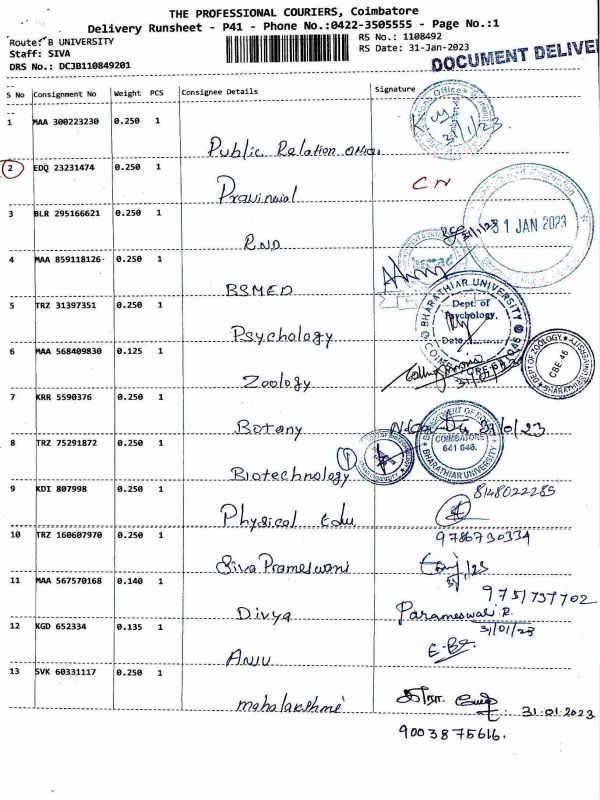 THE PROFESSIONAL COURIERS, Coimbatore
Delivery Runsheet - P41 - Phone No.:0422-3505555 - Page No.:1
Route: B UNIVERSITY
RS No.: 1108492
Staff: SIVA
1108492
RS Date: 31-Jan-2023
DRS No.: DCJB110849201
DOCUMENT DELIVE
S No Consignment No Weight PCS Consignee Details Signature
1 MAA 300223230 0.250 1
31/1/23.
Public Relation Officer
2 EDQ 23231474 0.250 1
CN
Provinoial
3 BLR 295166621 0.250 1
31 JAN 2023
RND
4 MAA 859118126 0.250 1
BSMED
5 TRZ 31397351 0.250 1
BHARATHIAR UNIVERSITY
Dept. of
Psychology,
Date
Psychology
6 MAA 568409830 0.125 1
DEPT OF ZOOLOGY
CBE-46
BHARATHIAR UNIVERSITY
Zoology
7 KRR 5590376 0.250 1
31/01/23
Botany
8 TRZ 75291872 0.250 1
COIMBATORE
641 046.
BHARATHIAR UNIVERSITY
Biotechnology
9 KDI 807998 0.250 1
8148022285
Physical Edu
10 TRZ 160607970 0.250 1
9786730334
Siva Prameswani
11 MAA 567570168 0.140 1
9751737702
Divya
Parameswari. R
31/01/23
12 KGD 652334 0.135 1
ANJU
13 SVK 60331117 0.250 1
mahalakshmi
31.01.2023
9003875616.